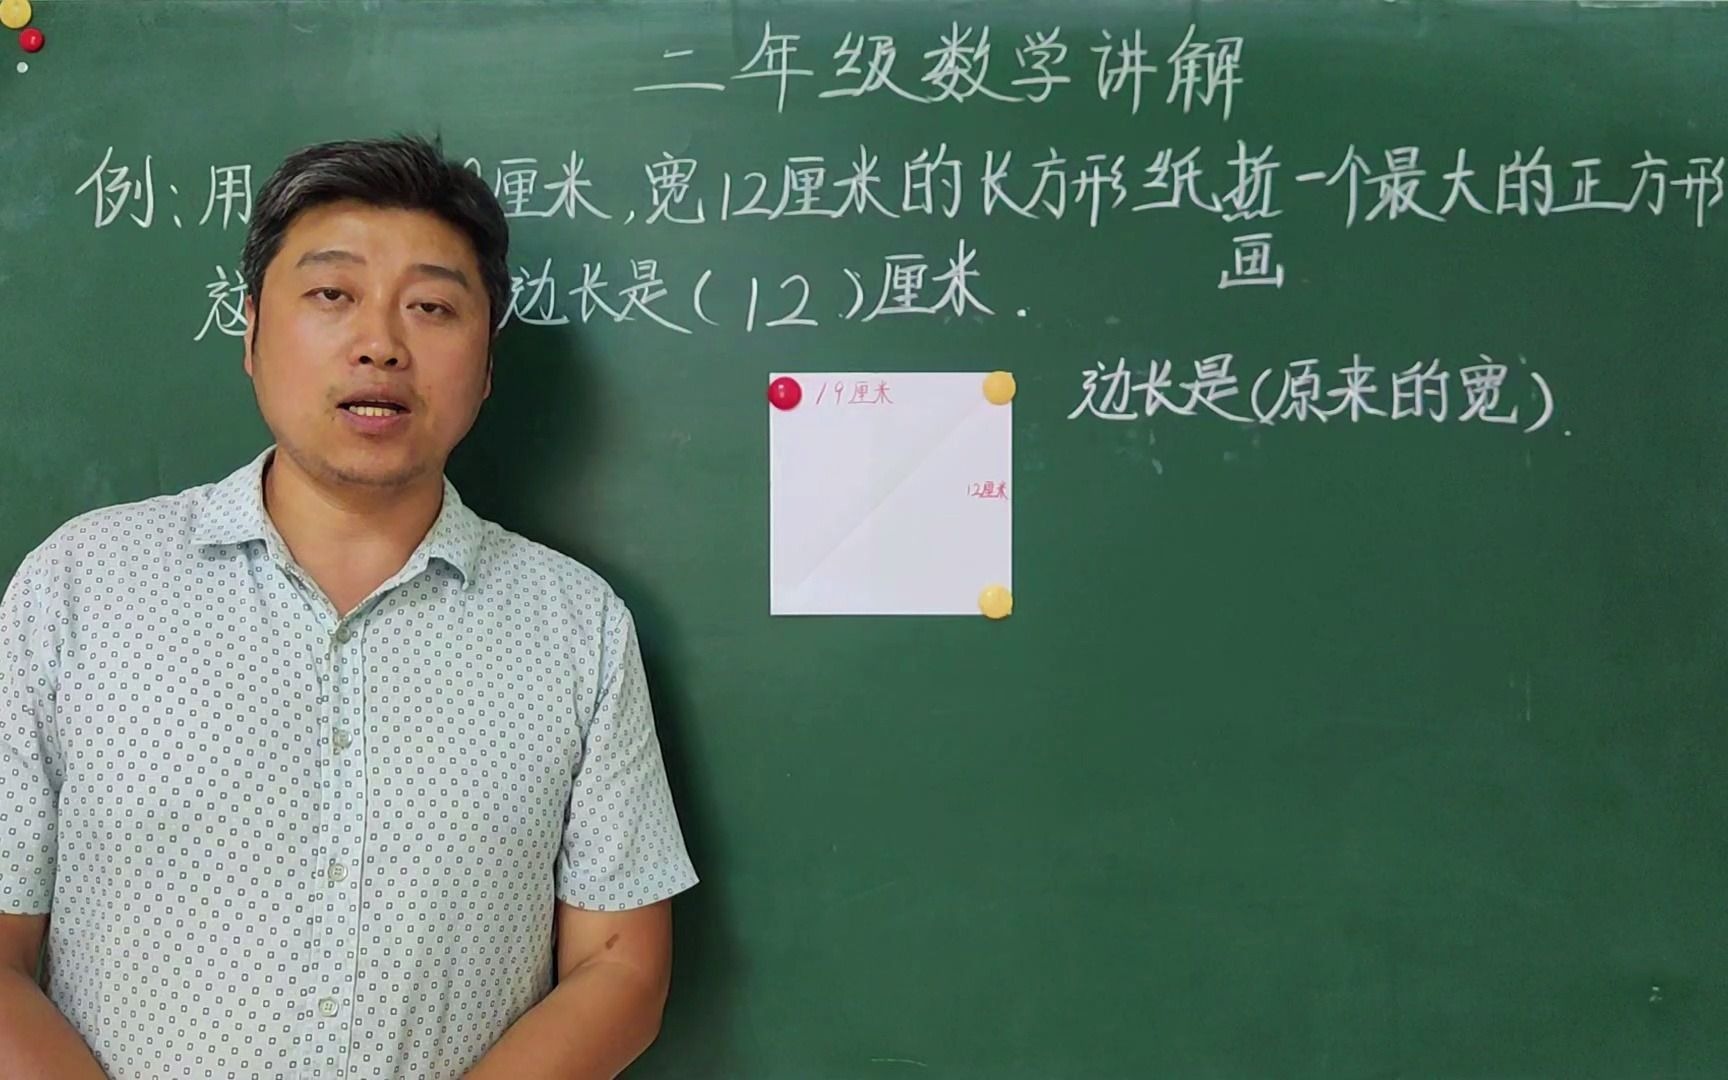 二年级数学讲解
例:用 9厘米,宽12厘米的长方形纸折一个最大的正方形
画
这 边长是(12)厘米.
19厘米
边长是(原来的宽).
12厘米